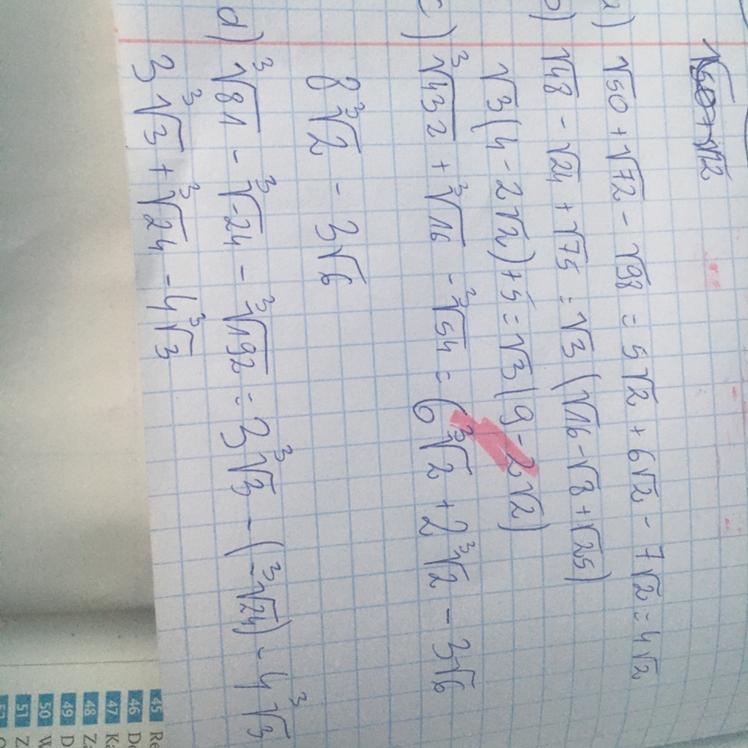 a) √50 + √72 - √98 = 5√2 + 6√2 - 7√2 = 4√2
b) √48 - √24 + √75 = √3 (√16 - √8 + √25)
√3(4 - 2√2) + 5 = √3(9 - 2√2)
c) ³√432 + ³√16 - ³√54 = 6³√2 + 2³√2 - 3√6
8³√2 - 3√6
d) ³√81 - ³√-24 - ³√192 = 3³√3 - (-³√24) - 4³√3
3³√3 + ³√24 - 4³√3
45 Re
46 Do
47 Ka
48 Za
49 D
50 W
51 Z